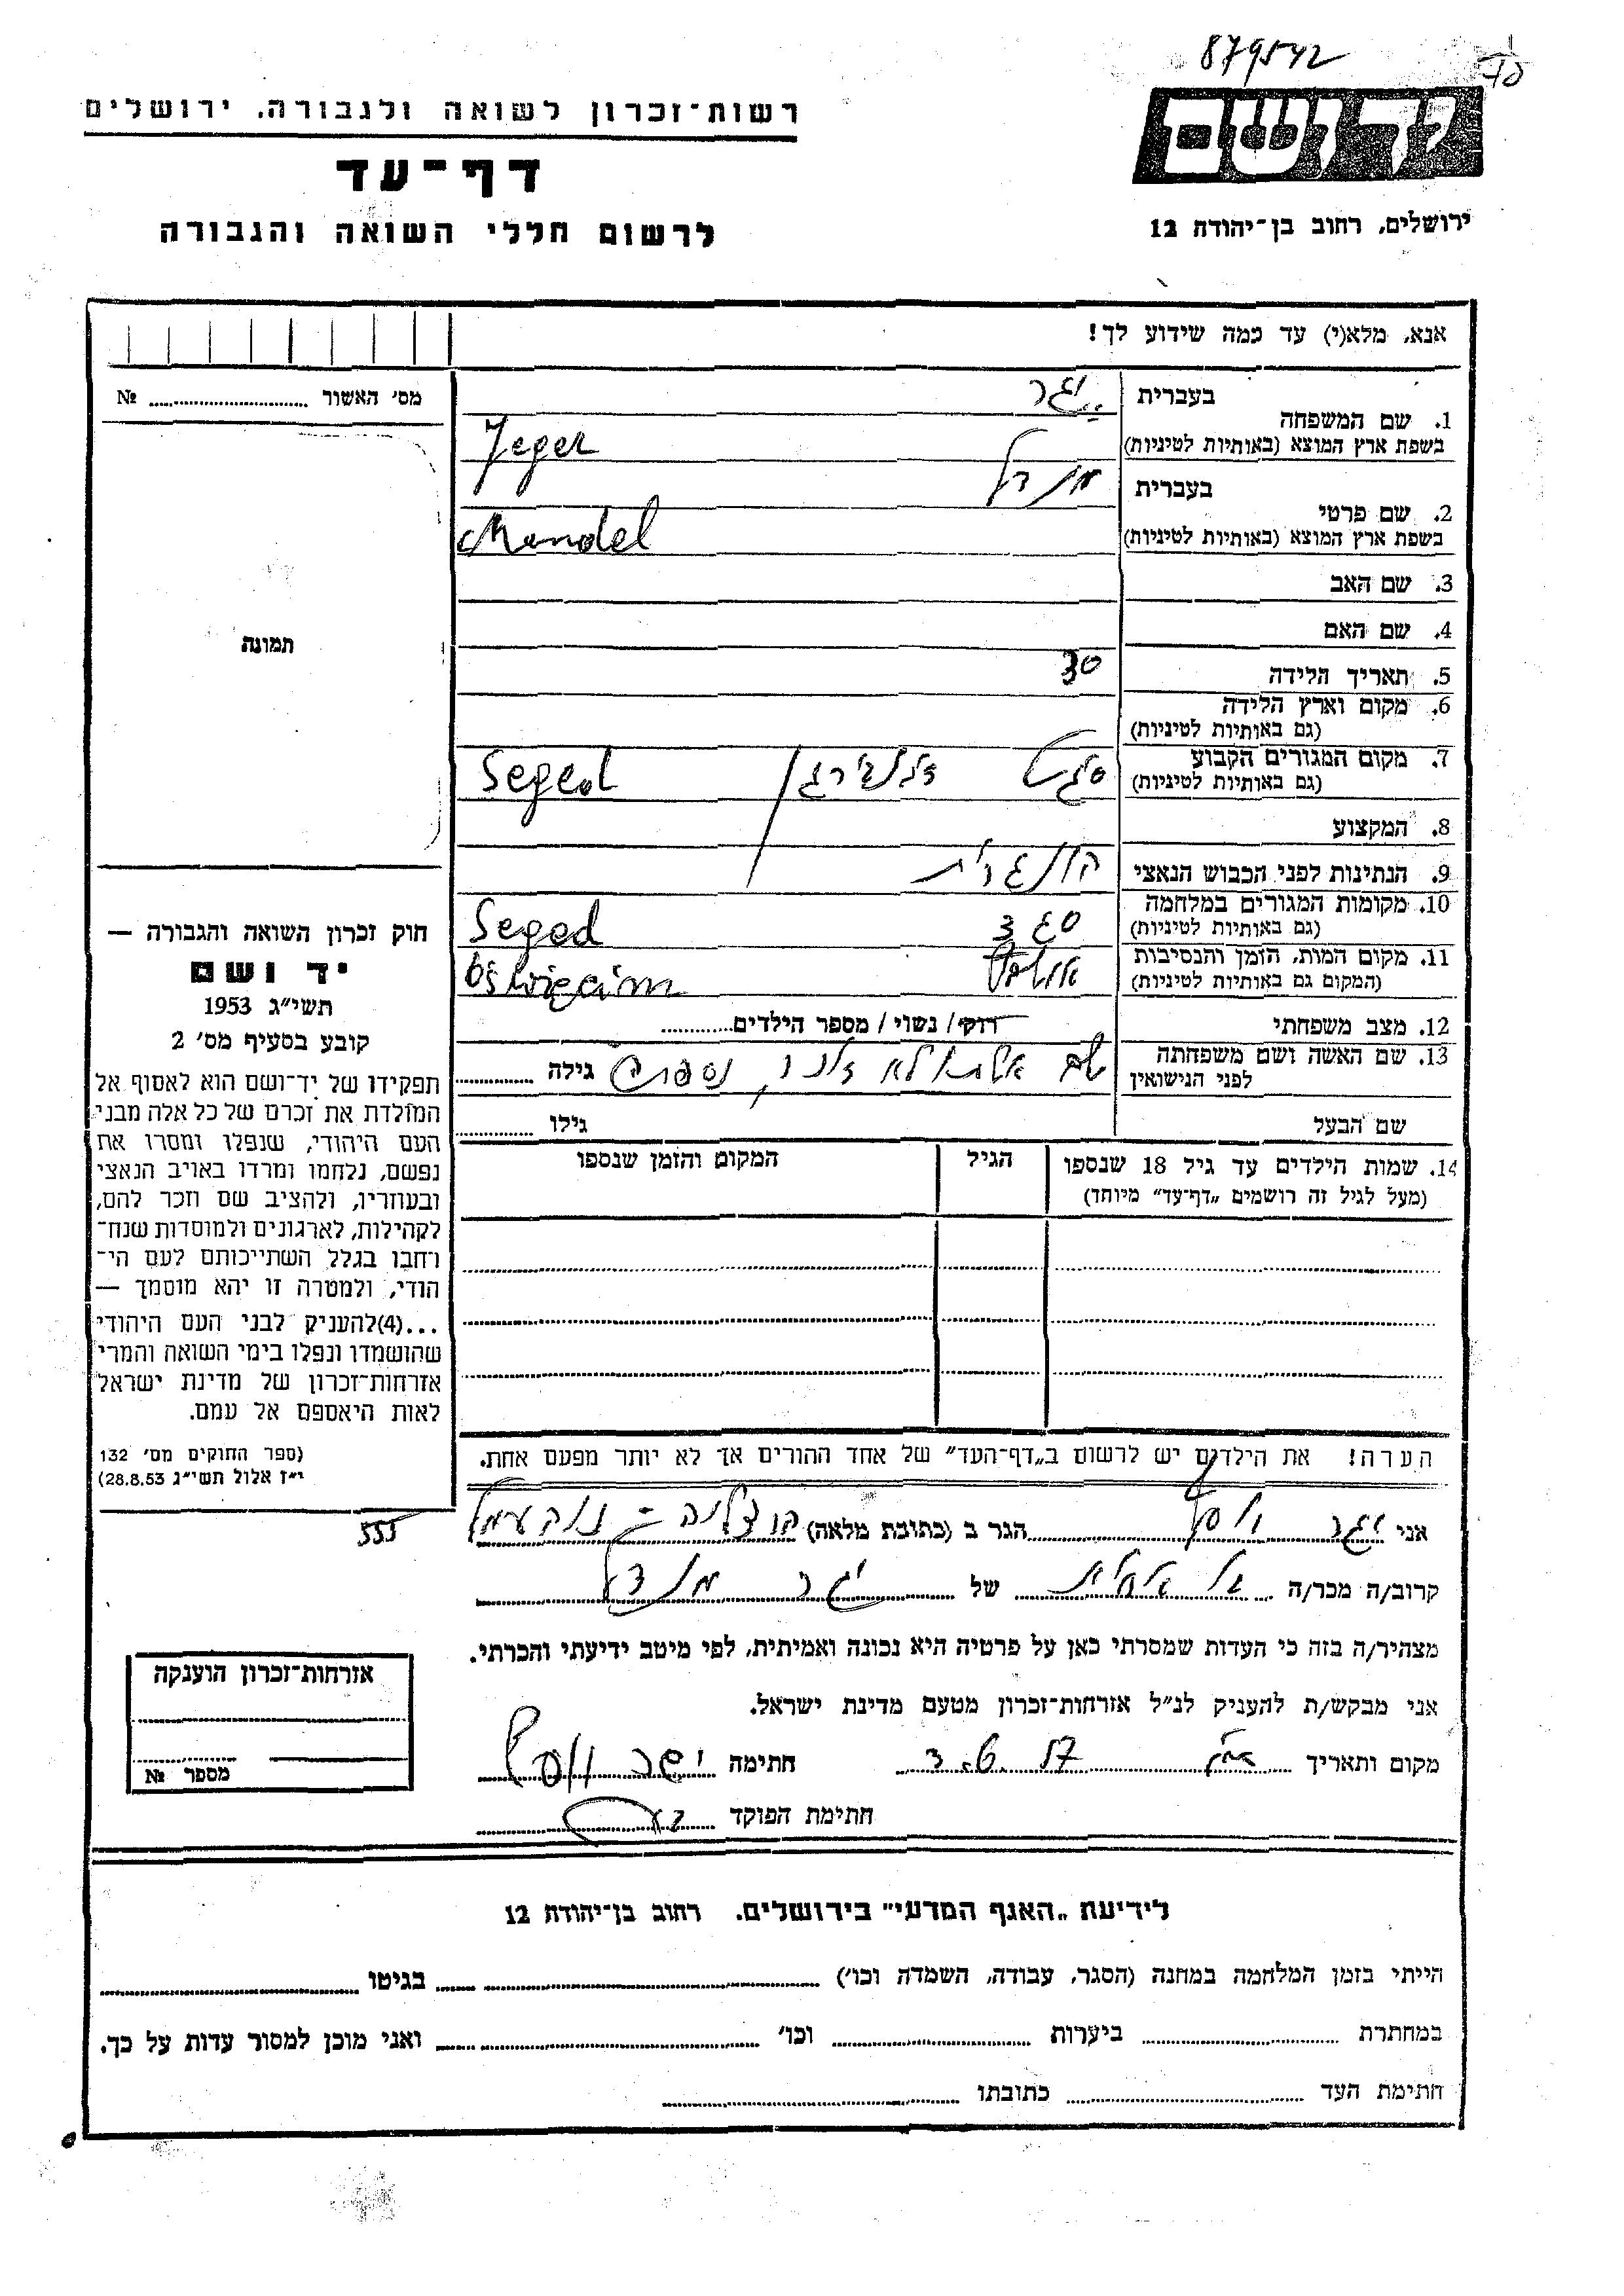 879542
רשות־זכרון לשואה ולגבורה, ירושלים
יד ושם
דף־עד
ירושלים, רחוב בן־יהודה 12
לרשום חללי השואה והגבורה
אנא, מלא(י) עד כמה שידוע לך!
מס׳ האשור № 
1. שם המשפחה
בעברית
ייגר
בשפת ארץ המוצא (באותיות לטיניות)
Jeger
2. שם פרטי
בעברית
מנדל
בשפת ארץ המוצא (באותיות לטיניות)
Mendel
3. שם האב
4. שם האם
תמונה
5. תאריך הלידה
30
6. מקום וארץ הלידה
(גם באותיות לטיניות)
7. מקום המגורים הקבוע
(גם באותיות לטיניות)
Seged
8. המקצוע
9. הנתינות לפני הכבוש הנאצי
הונגרית
10. מקומות המגורים במלחמה
(גם באותיות לטיניות)
סגד Seged
11. מקום המות, הזמן והנסיבות
(המקום גם באותיות לטיניות)
Oświęcim
12. מצב משפחתי
רווק / נשוי / מספר הילדים
13. שם האשה ושם משפחתה
לפני הנישואין
גילה
שם הבעל
גילו
14. שמות הילדים עד גיל 18 שנספו
(מעל לגיל זה רושמים „דף־עד״ מיוחד)
הגיל
המקום והזמן שנספו
חוק זכרון השואה והגבורה —
יד ושם
תשי״ג 1953
קובע בסעיף מס׳ 2
תפקידו של יד־ושם הוא לאסוף אל
המולדת את זכרם של כל אלה מבני
העם היהודי, שנפלו ומסרו את
נפשם, נלחמו ומרדו באויב הנאצי
ובעוזריו, ולהציב שם וזכר להם,
לקהילות, לארגונים ולמוסדות שנח־
רחבו בגלל השתייכותם לעם הי־
הודי, ולמטרה זו יהא מוסמך —
...(4) להעניק לבני העם היהודי
שהושמדו ונפלו בימי השואה והמרי
אזרחות־זכרון של מדינת ישראל
לאות היאספם אל עמם.
(ספר החוקים מס׳ 132
י״ז אלול תשי״ג 28.8.53)
הערה! את הילדים יש לרשום ב„דף־העד״ של אחד ההורים אך לא יותר מפעם אחת.
אני יגר יוסף הגר ב (כתובת מלאה)
קרוב/ה מכר/ה של יגר מנדל
מצהיר/ה בזה כי העדות שמסרתי כאן על פרטיה היא נכונה ואמיתית, לפי מיטב ידיעתי והכרתי.
אני מבקש/ת להעניק לנ״ל אזרחות־זכרון מטעם מדינת ישראל.
מקום ותאריך חתימה יגר יוסף
חתימת הפוקד
אזרחות־זכרון הוענקה
מספר №
לידיעת „האגף המדעי״ בירושלים, רחוב בן־יהודה 12
הייתי בזמן המלחמה במחנה (הסגר, עבודה, השמדה וכו׳) בגיטו
במחתרת ביערות וכו׳ ואני מוכן למסור עדות על כך.
חתימת העד כתובתו